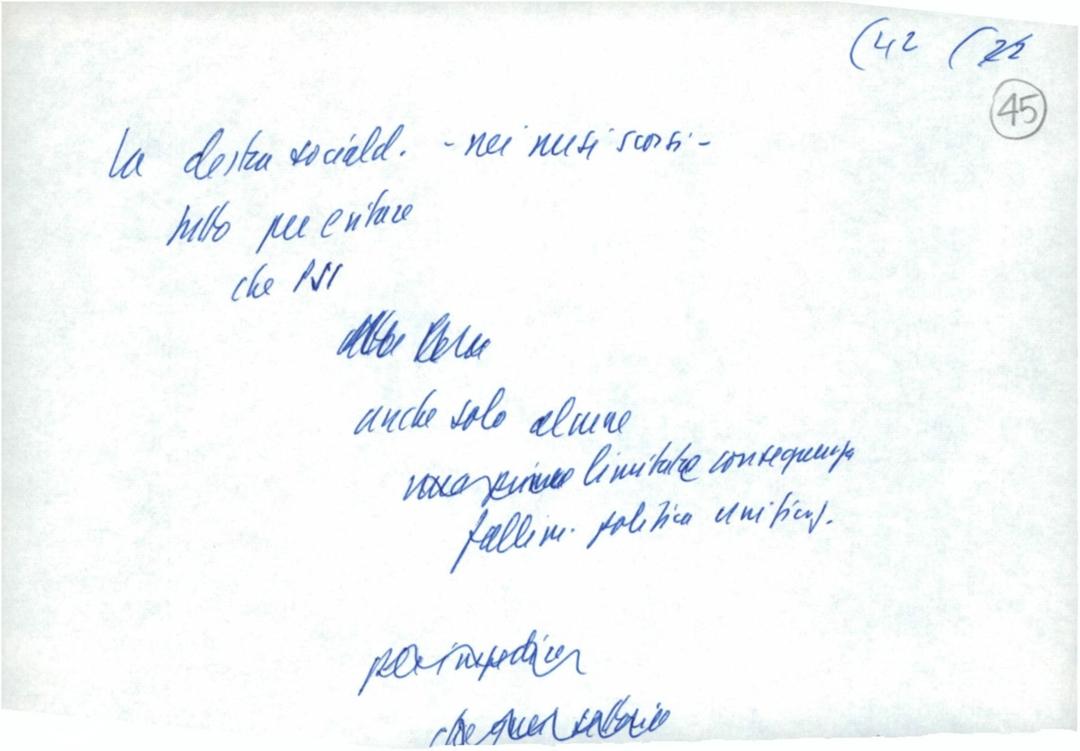 (42 (22
45
la destra sociald. - nei mesi scorsi -
tutto per evitare
che PSI
anche solo alcune
limitate conseguenze
fallim. politica unificaz.
per impedire
che